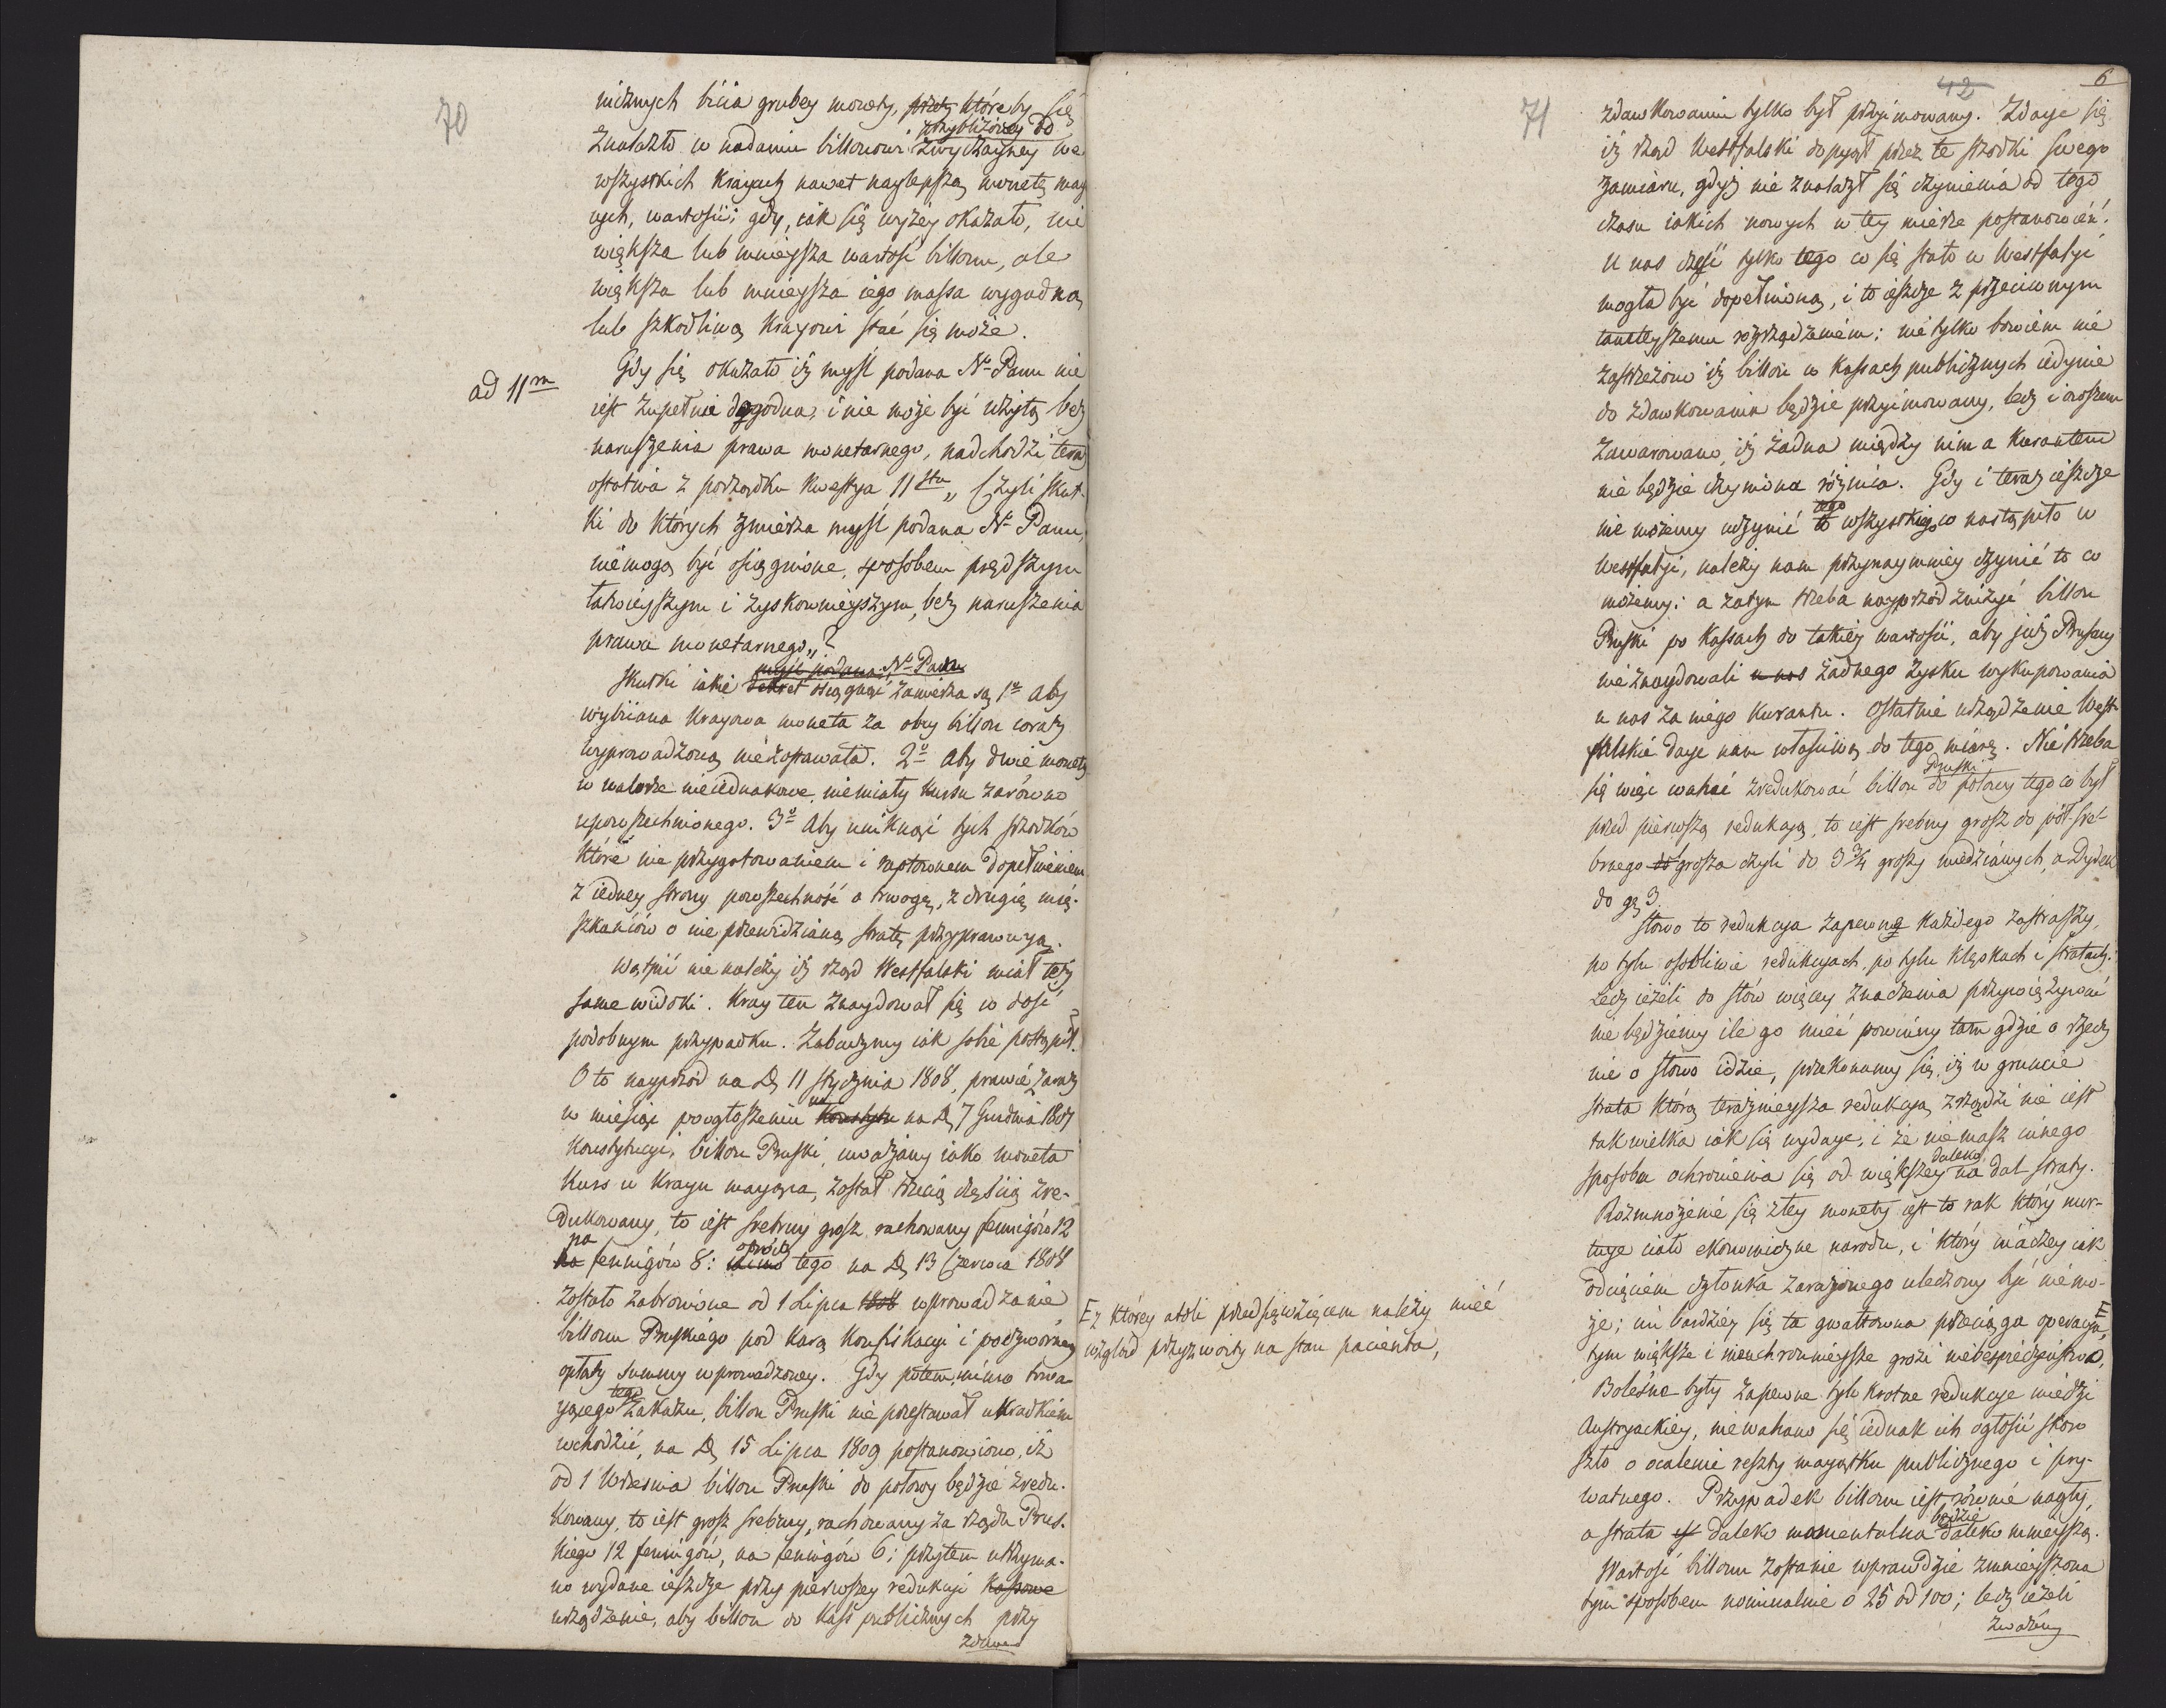 70
nicznych bicia grubey monety, przez któreby się
przybliżoney do
znalazło w nadaniu billonowi zwyczayney we
wszystkich krajach nawet naylepszą monetę mają
cych, wartości; gdy, iak się wyżey okazało, nie
większa lub mnieysza wartość billonu, ale
większa lub mnieysza iego massa wygodną
lub szkodliwą kraiowi stać się może.
ad 11m
Gdy się okazało iż myśl podana Nu Panu nie
iest zupełnie dogodna, i nie może być użytą bez
naruszenia prawa monetarnego, nadchodzi teraz
ostatnia z porządku kwestya 11sta „Czyli skut-
ki do których zmierza myśl podana Nu Panu,
niemogą być osiągnione, sposobem prędszym
łatwieyszym i zyskownieyszym, bez naruszenia
prawa monetarnego„?
myśl podana Nu Panu
Skutki iakie dekret osiągnąć zamierza są 1o aby
wybiiana kraiowa moneta za obcy billon coraz
wyprowadzoną niezostawała. 2o aby dwie monety
w walorze nieiednakowe, niemiały kursu zarówno
upowszechnionego. 3o Aby uniknąć tych środków
które nie przygotowaniem i raptownem dopełnieniem
z iedney strony powszechność o trwogę, z drugiey mie-
szkańców o nieprzewidzianą stratę przyprawuią.
Wątpić nie należy iż rząd Westfalski miał też
same widoki. Kray ten znaydował się w dość
podobnym przypadku. Zobaczmy iak sobie postąpił.
Oto nayprzód na D. 11 stycznia 1808, prawie zaraz
w miesiąc poogłoszeniu na D. 7 Grudnia 1807
konstytucyi, billon Pruski, uważany iako moneta
kurs w kraju maiąca, został trzecią częścią zre-
dukowany, to iest srebrny grosz rachowany fenigów 12
na
na fenigów 8: oprócz tego na D. 13 Czerwca 1808
zostało zabronione od 1 Lipca 1808 wprowadzanie
billonu Pruskiego pod karą konfiskacyi i poczwórney
opłaty summy wprowadzoney. Gdy potem, mimo trwa-
tego
iącego zakazu, billon Pruski nie przestawał ukradkiem
wchodzić, na D. 15 Lipca 1809 postanowiono, iż
od 1 Września billon Pruski do połowy będzie zredu-
kowany, to iest grosz srebrny, rachowany za rządu Prus-
kiego 12 fenigów, na fenigów 6; przytem utrzyma-
no wydane ieszcze przy pierwszey redukcyi kassowe
urządzenie, aby billon do kass publicznych przy
zdawko
42
6
71
zdawkowaniu tylko był przyimowany. Zdaje się
iż rząd Westfalski dopiął przez te środki swego
zamiaru, gdyż nie znalazł się czynienia od tego
czasu iakich nowych w tey mierze postanowień.
U nas część tylko tego co się stało w Westfalyi
mogła być dopełnioną, i to ieszcze z przeciwnym
tamteyszemu rozrządzeniem; nietylko bowiem nie
zastrzeżono iż billon w kassach publicznych iedynie
do zdawkowania będzie przyimowany, lecz i owszem
zawarowano, iż żadna między nim a kurantem
nie będzie czyniona różnica. Gdy i teraz ieszcze
tego
nie możemy uczynić to wszystkiego co nastąpiło w
Westfalyi, należy nam przynaymniey czynić to co
możemy: a zatym trzeba nayprzód zniżyć billon
Pruski po kassach do takiey wartości, aby już Prusacy
nie znaydowali u nas żadnego zysku wykupowania
u nas za niego kurantu. Ostatnie urządzenie West-
falskie daje nam właściwą do tego miarę. Nie trzeba
Pruski
się więc wahać zredukować billon do połowy tego co był
przed pierwszą redukcyą, to iest srebrny grosz do pół sre-
brnego do grosza czyli do 3 3/4 groszy miedzianych, a Dydek
do gr 3.
Słowo to redukcya zapewne każdego zastraszy,
po tylu osobliwie redukcyach, po tylu klęskach i stratach:
Lecz ieżeli do słów więcey znaczenia przywiązywać
nie będziemy ile go mieć powinny tam gdzie o rzecz
nie o słowo idzie, przekonamy się, iż w gruncie
strata którą teraźnieysza redukcya zrządzi nie iest
tak wielka iak się wydaje, i że niemasz innego
daleko
sposobu ochronienia się od większey na dal straty.
Rozmnożenie się złey monety iest to rak który nur-
tuje ciało ekonomiczne narodu, i który inaczey iak
odcięciem członka zarażonego uleczony być niemo-
że; im bardziey się ta gwałtowna przeciąga operacya, E
E z którey atoli przedsięwzięciem należy mieć
wzgląd przyzwoity na stan pacienta,
tym większe i nieuchronnieysze grozi niebespieczeństwo.
Boleśne były zapewne tylo krotne redukcye miedzi
Austryackiey, niewahano się iednak ich ogłosić skoro
szło o ocalenie reszty maiątku publicznego i pry-
watnego. Przypadek billonu iest równie nagły,
będzie
a strata iest daleko momentalna daleko mnieyszą.
Wartość billonu zostanie wprawdzie zmnieyszona
tym sposobem nominalnie o 25 od 100; lecz ieżeli
zważemy